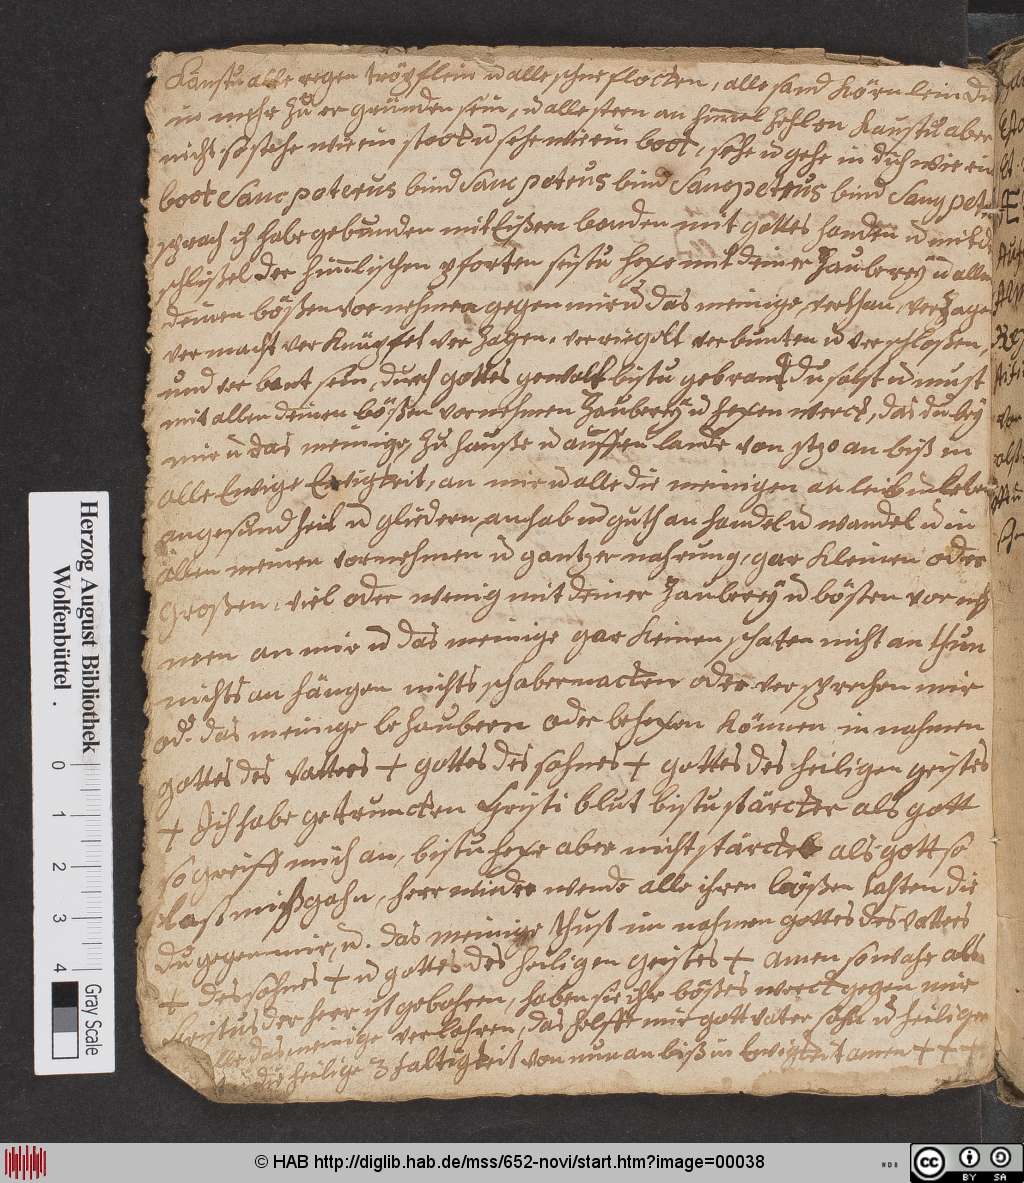 Kanstu alle regen tröpflein u alle schne flocken, alle sand körnlein
in mehr zu er gründen sein, u alle stern an himel zehlen kanstu aber
nicht so stehe wie ein stock u sehe wie ein bock, sehe u gehe in dich wie ein
bock Sanc peterus bind Sanc peterus bind Sanc peterus bind Sanc pet
sprach ich habe gebunden mit Eißern banden mit gottes handen u mit
schlüßel der himlischen pforten seÿstu hexe mit deiner Zauberey u allen
deinen bößen vor nehmen gegen mir u das meinige, verthan, ver Zagen
ver macht ver Knüpffet ver Zagen. verriegelt verbunten u verschloßen,
und ver bant sein, durch gottes gewalt bistu gebrand du solst u must
mit allen deinen bößen vornehmen Zauberey u hexen werck, das du bey
mir u das meinige, zu hauße u aussen lande von itzo an biß in
alle Ewige Ewigkeit, an mir u alle die meinigen an leib u leben
an gesund heit u gliedern, an hab u guth an handel u wandel u in
allen meinen vornehmen u gantzer nahrung, gar kleinen oder
Großen, viel oder wenig mit deiner Zauberey u bösten vor neh
men an mir u das meinige gar keinen schaten nicht an thun
nichts an hängen nichts schabernacken oder ver sprechen mir
od. das meinige be Zaubern oder behexen können in nahmen
gottes des Vatters + gottes des sohnes + gottes des heiligen geistes
+ Ich habe getruncken Christi blut bistu stärcker als gott
so greiff mich an, bistu hexe aber nicht stärcker als gott so
laß mich gahn, herr wende alle ihren bößen thaten die
du gegen mir, u. das meinige thust im nahmen gottes des Vatters
+ des sohnes + u gottes des heiligen geistes + amen so wahr als
Cristus der herr ist gebohren, haben sie ihr bößes werck gegen mir
alle das meinige verlohren, das helffe mir gott vater sohn u heiliger
die heilige 3 faltigkeit von nun an biß in Ewigkeit amen + + +
Herzog August Bibliothek
Wolfenbüttel
0 1 2 3 4
Gray Scale
© HAB http://diglib.hab.de/mss/652-novi/start.htm?image=00038
cc BY SA